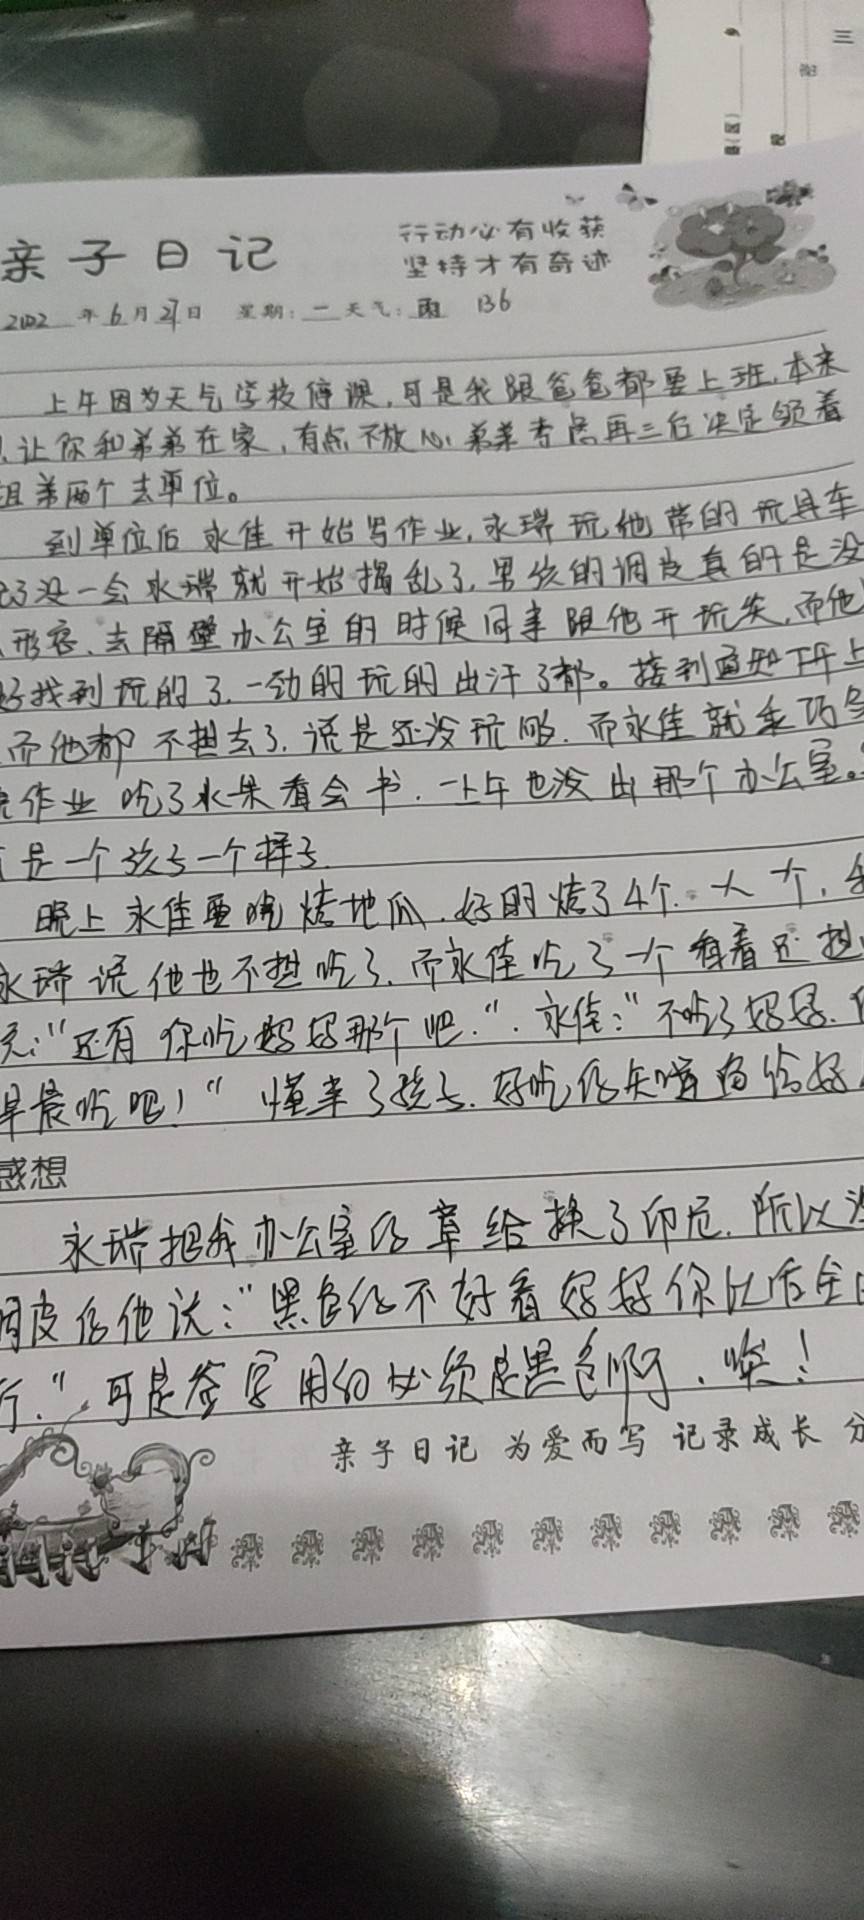 亲子日记
行动必有收获
坚持才有奇迹
2022年6月27日 星期:一 天气:雨 136
上午因为天气学校停课,可是我跟爸爸都要上班,本来
让你和弟弟在家,有点不放心弟弟考虑再三后决定领着
姐弟两个去单位。
到单位后永佳开始写作业,永瑞玩他带的玩具车
没一会永瑞就开始捣乱了,男孩的调皮真的是没
形容、去隔壁办公室的时候同事跟他开玩笑,而他
好找到玩的了.一劲的玩的出汗了都。接到通知下午上
而他都不想去了,说是还没玩够.而永佳就乖巧
完作业吃了水果看会书.一上午也没出那个办公室。
是一个孩子一个样子.
晚上永佳要吃烤地瓜.好的烤了4个.一人一个,
永瑞说他也不想吃了.而永佳吃了一个看着还想
:"还有你吃妈妈那个吧.".永佳:"不吃了妈妈.
早晨吃吧!"懂事了孩子.好吃的知道留给妈
感想
永瑞把我办公室的章给换了印尼.所以
调皮的他说:"黑色的不好看妈妈你以后
行."可是签字用的必须是黑色啊.唉!
亲子日记 为爱而写 记录成长